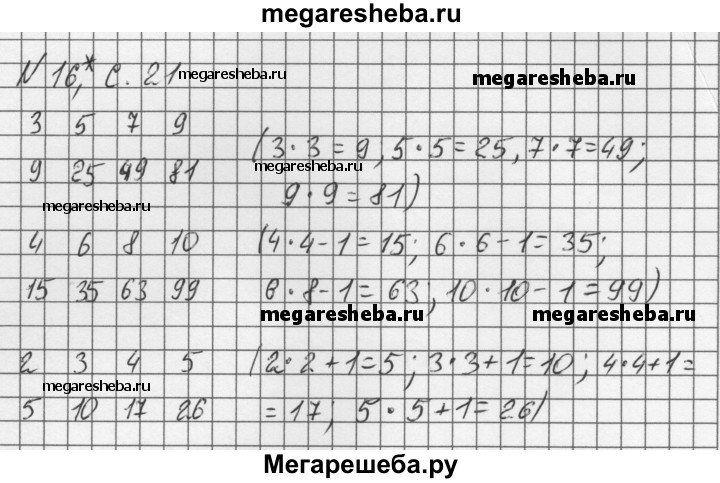 megaresheba.ru
N 16,* с. 21 megaresheba.ru megaresheba.ru
3 5 7 9
(3·3=9; 5·5=25, 7·7=49;
9 25 49 81 megaresheba.ru
megaresheba.ru 9·9=81)
4 6 8 10 (4·4-1=15; 6·6-1=35;
15 35 63 99 8·8-1=63; 10·10-1=99)
megaresheba.ru megaresheba.ru
2 3 4 5 (2·2+1=5; 3·3+1=10; 4·4+1=
megaresheba.ru
5 10 17 26 =17; 5·5+1=26)
megaresheba.ru
Мегарешеба.ру